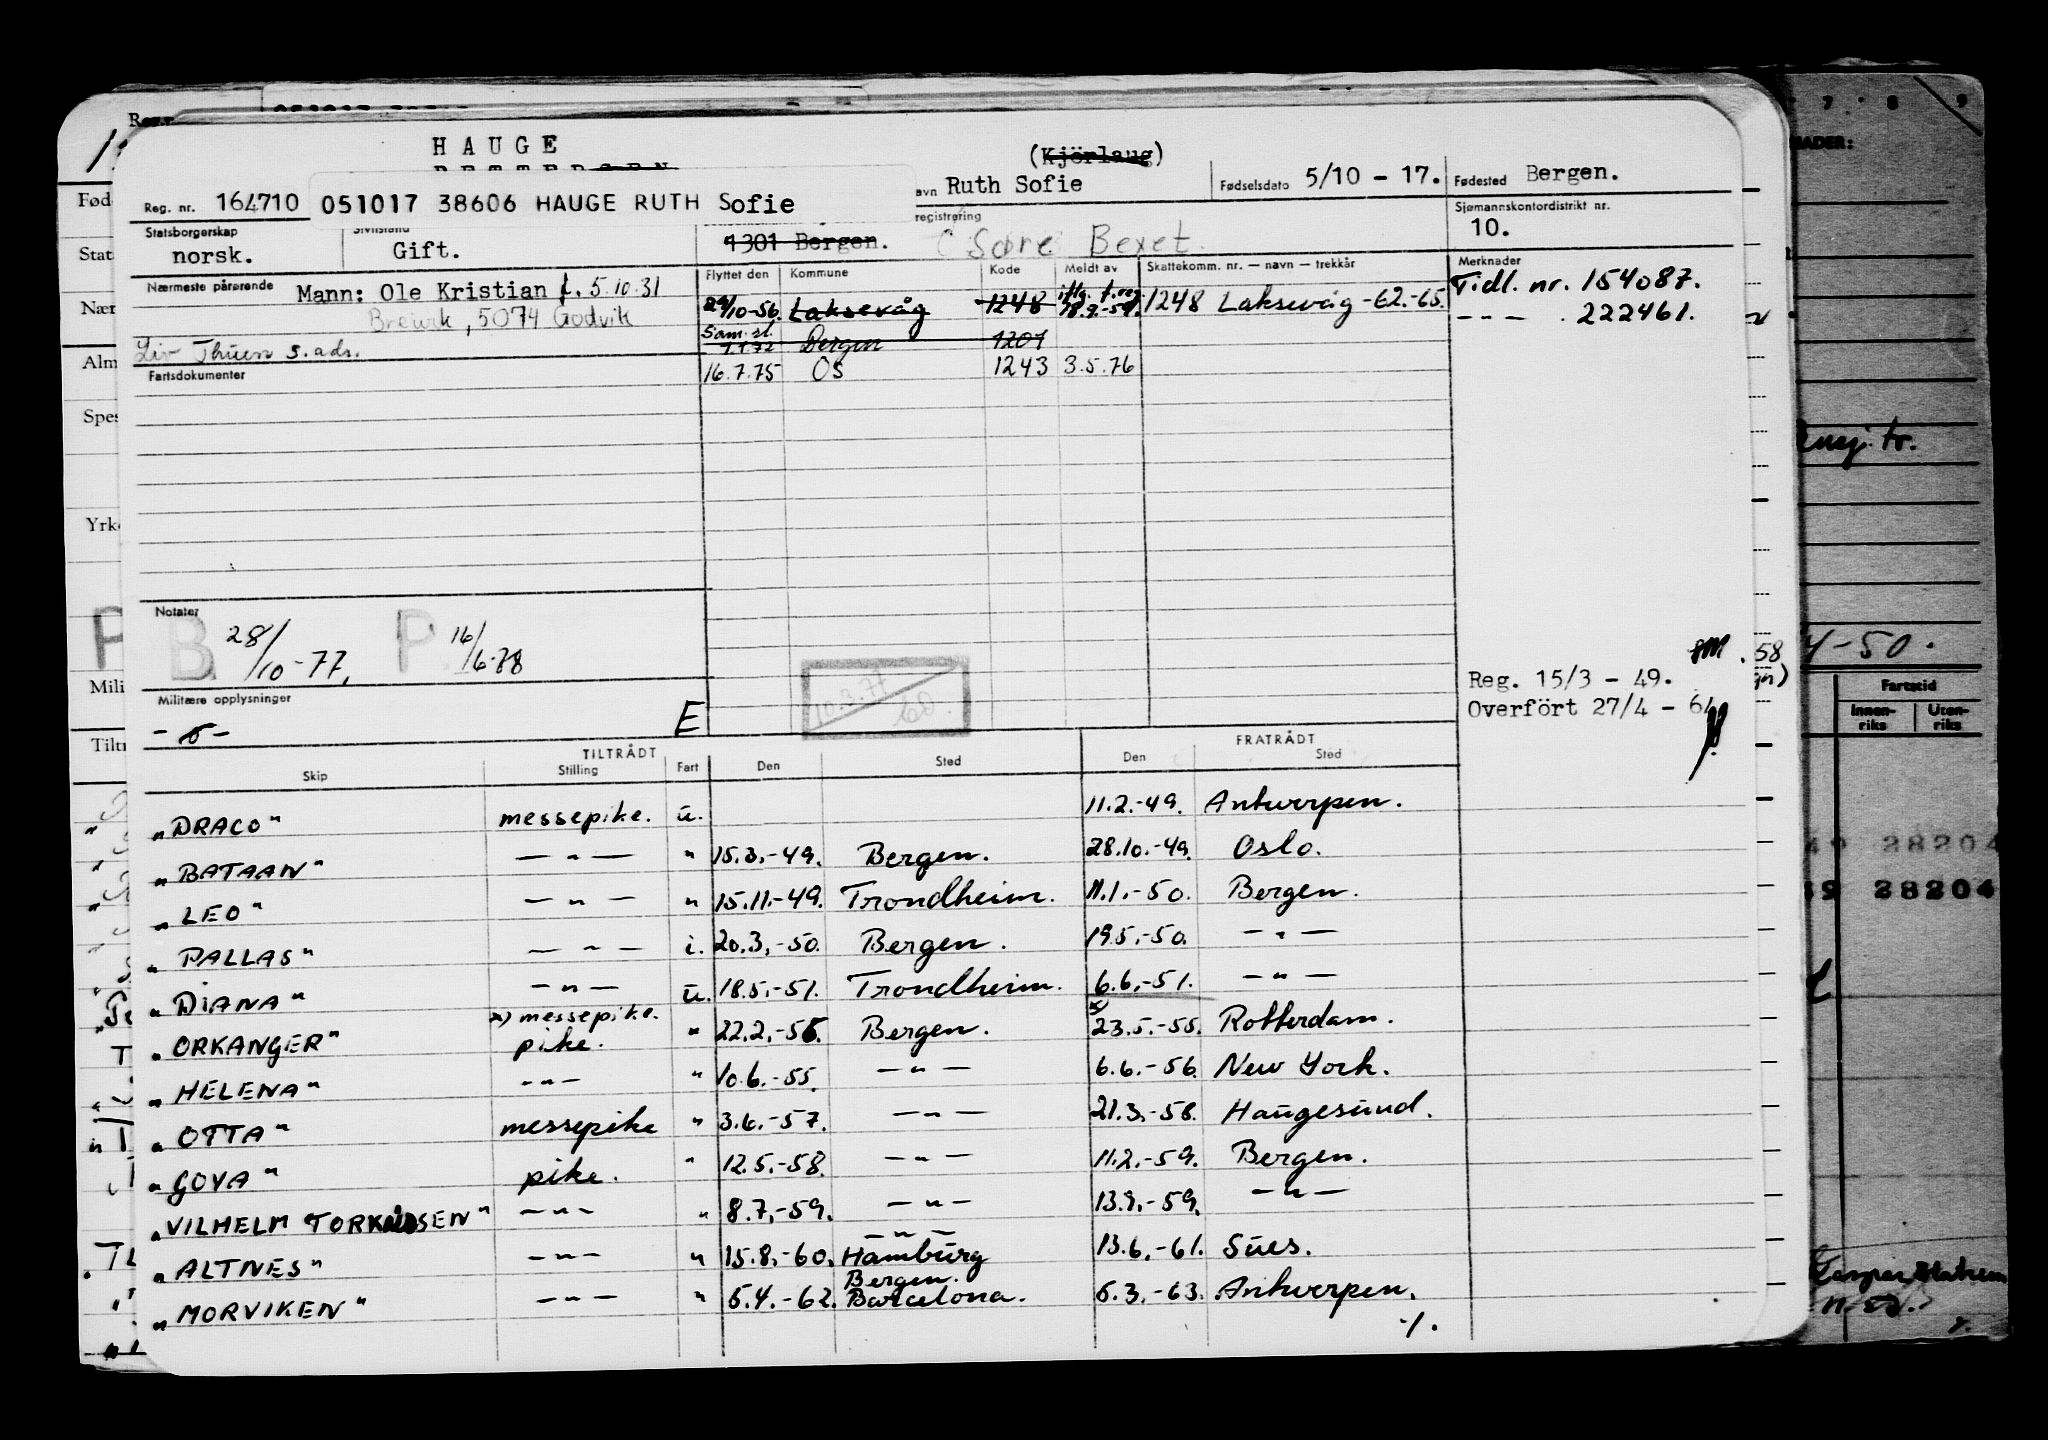 HAUGE
(Kjörlaug)
Reg. nr. 164710 051017 38606 HAUGE RUTH Sofie avn Ruth Sofie Fødselsdato 5/10 - 17. Fødested Bergen.
Statsborgerskap norsk. Sivilstand Gift. 1301 Bergen. registrering Sjømannskontordistrikt nr. 10.
Nærmeste pårørende Mann: Ole Kristian f. 5.10.31
5074 Godvik
Liv Thuen s. ads.
Fartsdokumenter
Flyttet den Kommune Kode Meldt av Skattekomm. nr. — navn — trekkår Merknader
29/10-56. Laksevåg 1248 1248 Laksevåg -62.-65. Tidl. nr. 154087.
Sam.sl. 1.1.72 Bergen 1201 - - - . 222461.
16.7.75 Os 1243 3.5.76
Notater
B 28/10-77. P 16/6-78
10.3.77
Militære opplysninger
E
Reg. 15/3 - 49.
Overfört 27/4 - 64
TILTRÅDT FRATRÅDT
Skip Stilling Fart Den Sted Den Sted
"DRACO" messepike. u. 11.2.-49. Antwerpen.
"BATAAN" — " — " 15.3.-49. Bergen. 28.10.-49. Oslo.
"LEO" — " — " 15.11.-49. Trondheim. 11.1.-50. Bergen.
"PALLAS" — " — i. 20.3.-50. Bergen. 19.5.-50. — " —
"DIANA" — " — u. 18.5.-51. Trondheim. 6.6.-51. — " —
"ORKANGER" x) messepike. pike. " 22.2.-55. Bergen. x) 23.5.-55. Rotterdam.
"HELENA" — " — " 10.6.-55. — " — 6.6.-56. New York.
"OTTA" messepike " 3.6.-57. — " — 21.3.-58. Haugesund.
"GOVA" pike. " 12.5.-58. — " — 11.2.-59. Bergen.
"VILHELM TORKILDSEN" — " — " 8.7.-59. — " — 13.9.-59. — " —
"ALTNES" — " — " 15.8.-60. — " — Hamburg 13.6.-61. Sues.
"MORVIKEN" — " — " 5.4.-62. Bergen. Barcelona. 5.3.-63. Antwerpen.
./.